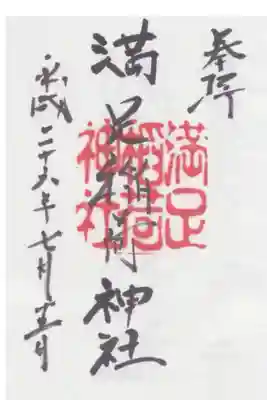 奉拝
満足稲荷神社
満足
稲荷
神社
平成二十六年七月十三日